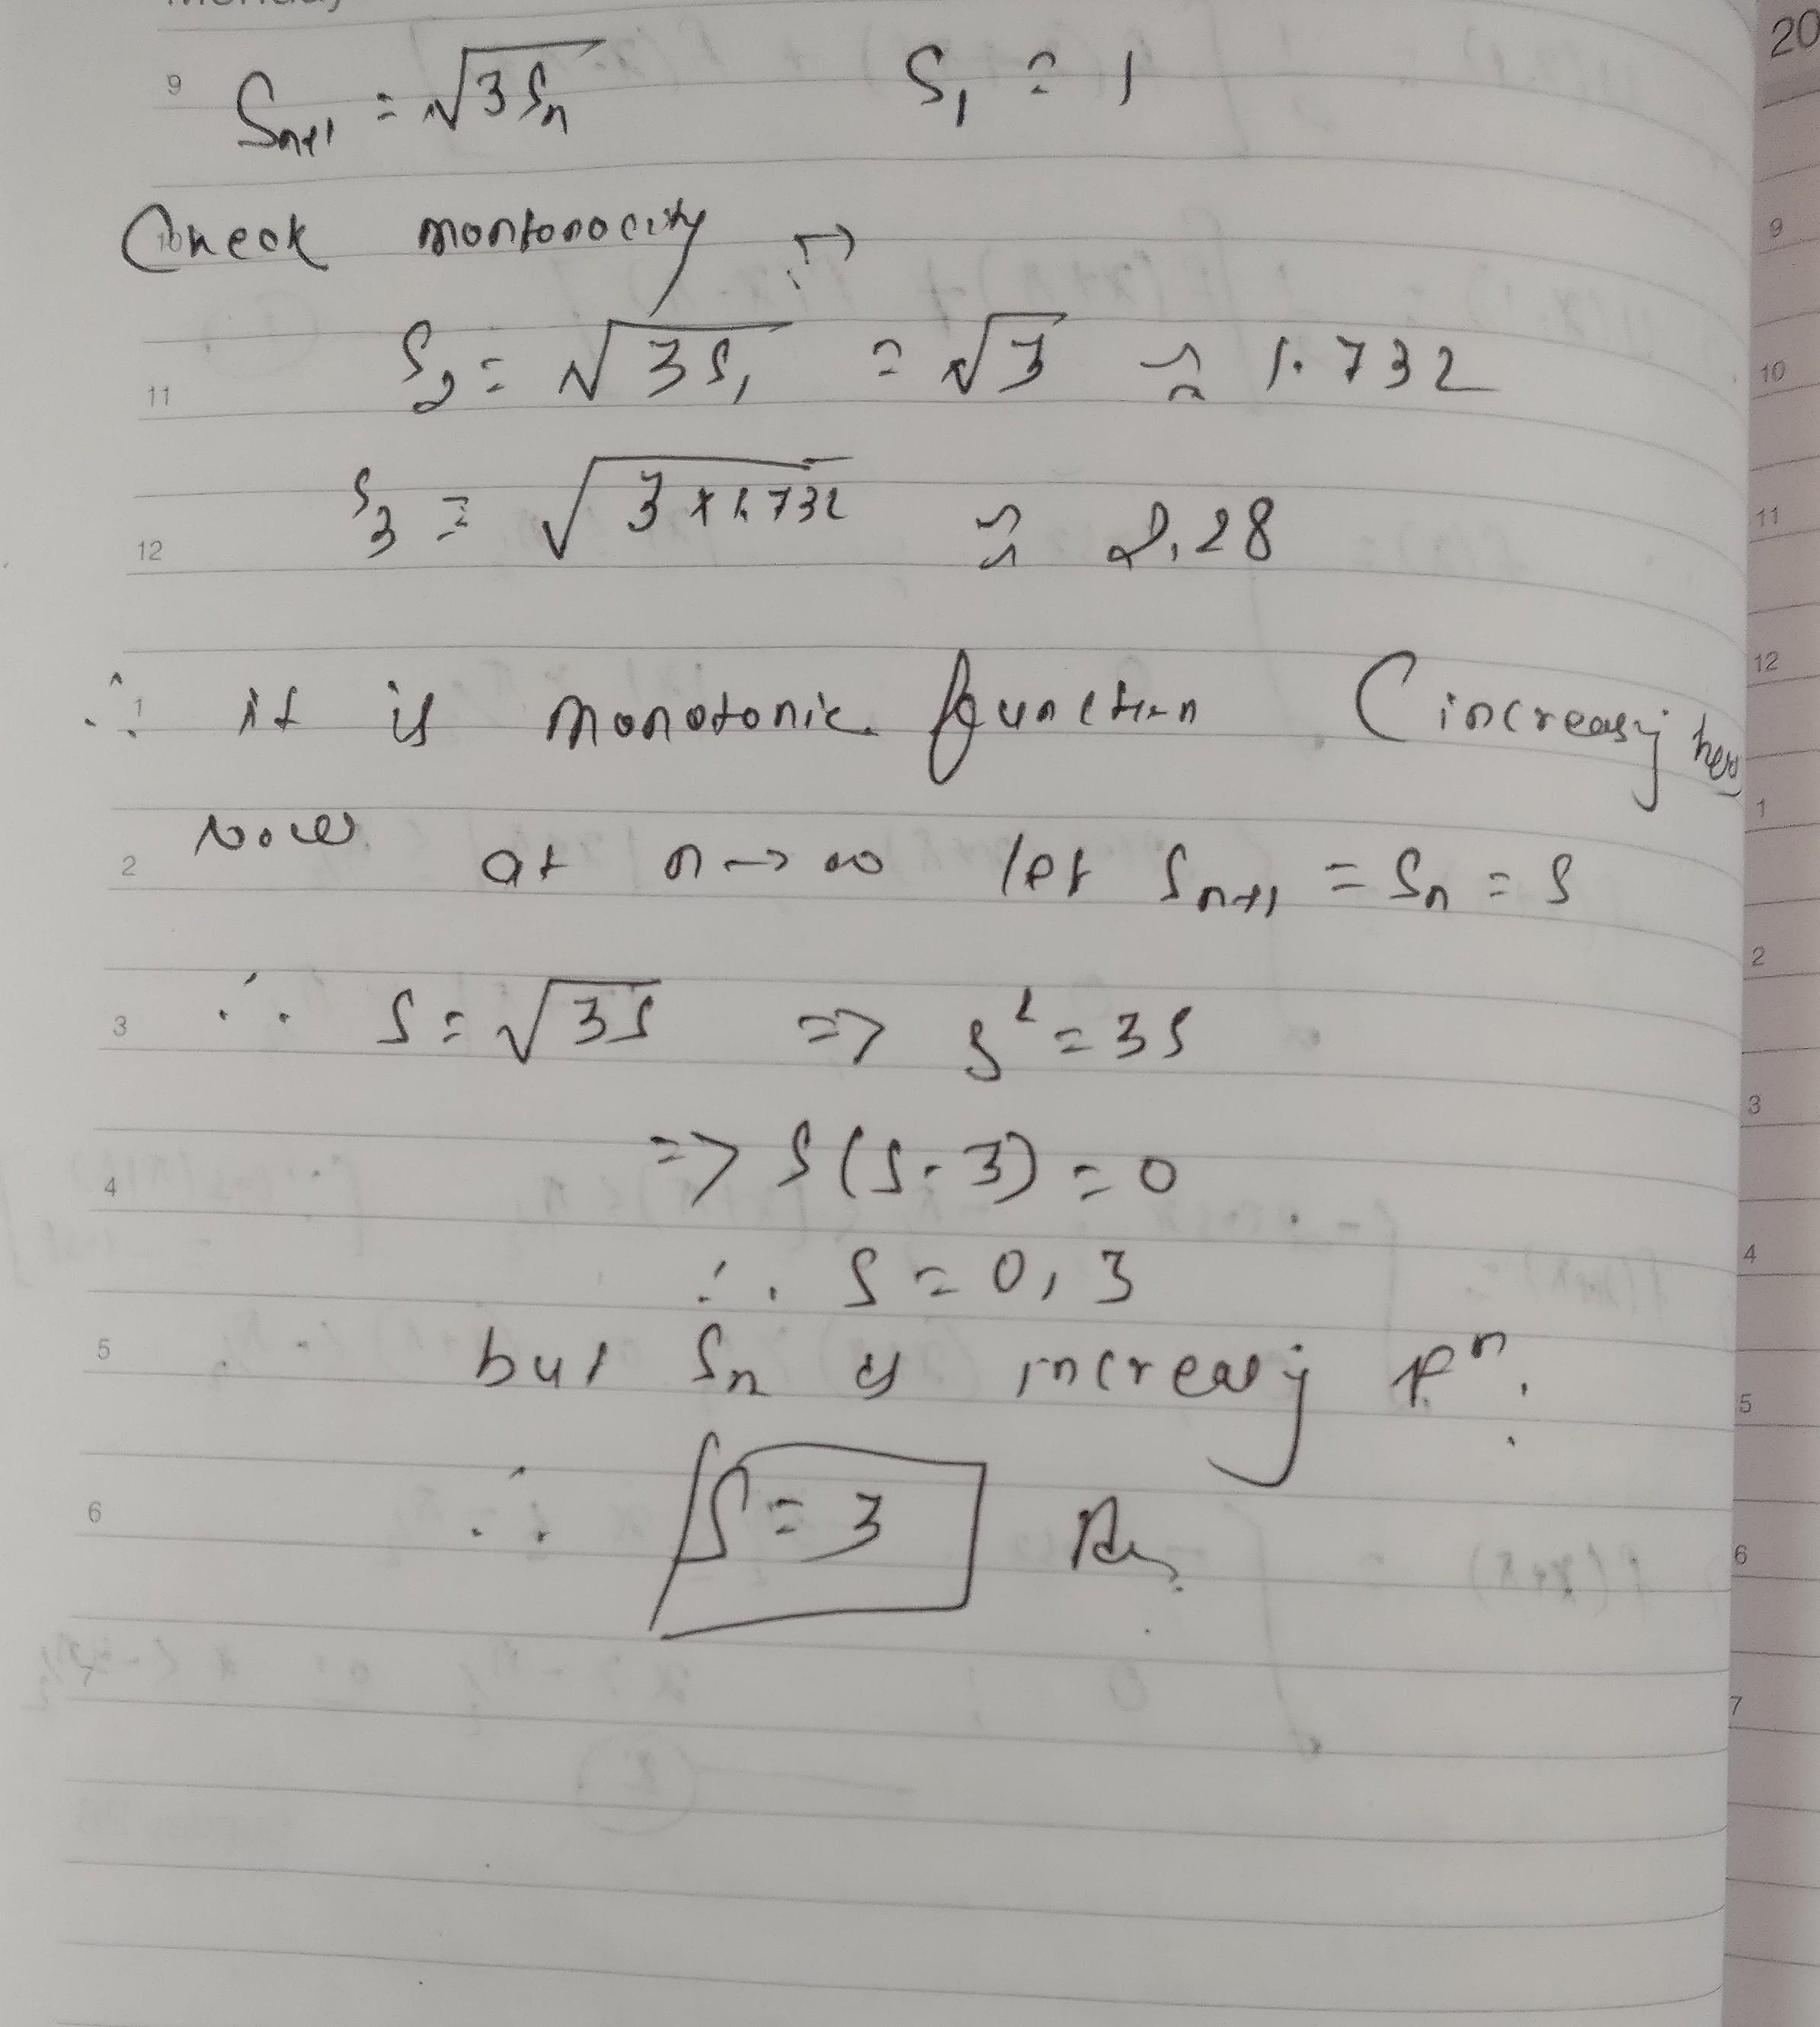 20
9 Sn+1 = √3Sn S1 = 1
Check montonocity :→
S2 = √3S1 = √3 ≈ 1.732
11
10
S3 = √3×1.732 ≈ 2.28
12
∴ it is monotonic function (increasing here
Now at n→∞ let Sn+1 = Sn = S
2
∴ S = √3S => S² = 3S
3
=> S(S-3) = 0
4
∴ S = 0, 3
5 but Sn is increasing fn.
∴ S = 3 Ans
6
9
10
11
12
1
2
3
4
5
6
7